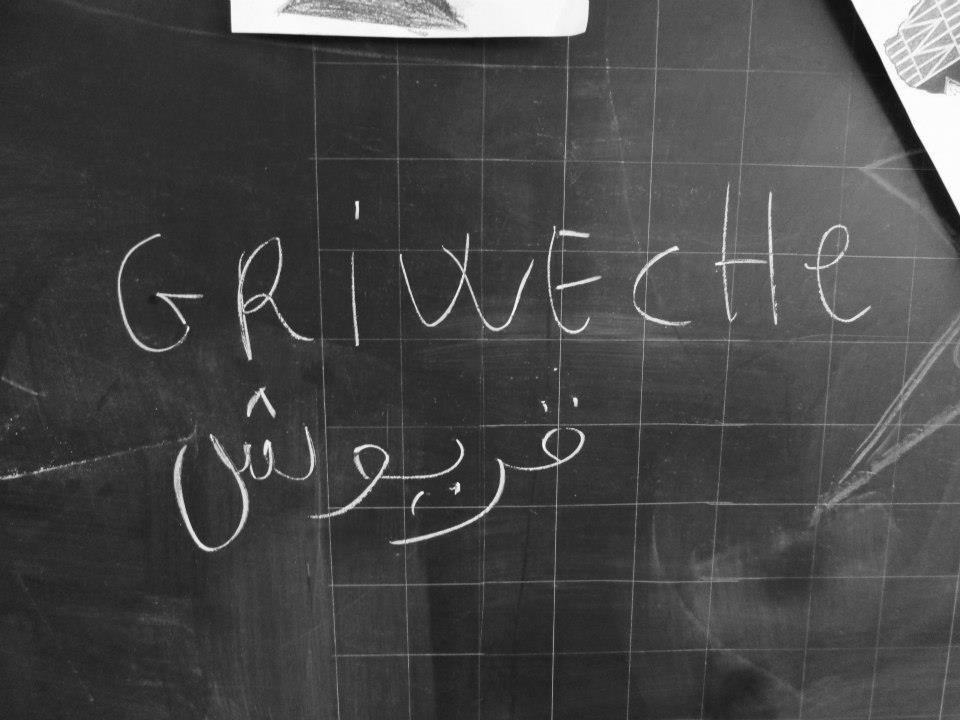 GRiWECHe
قريوش